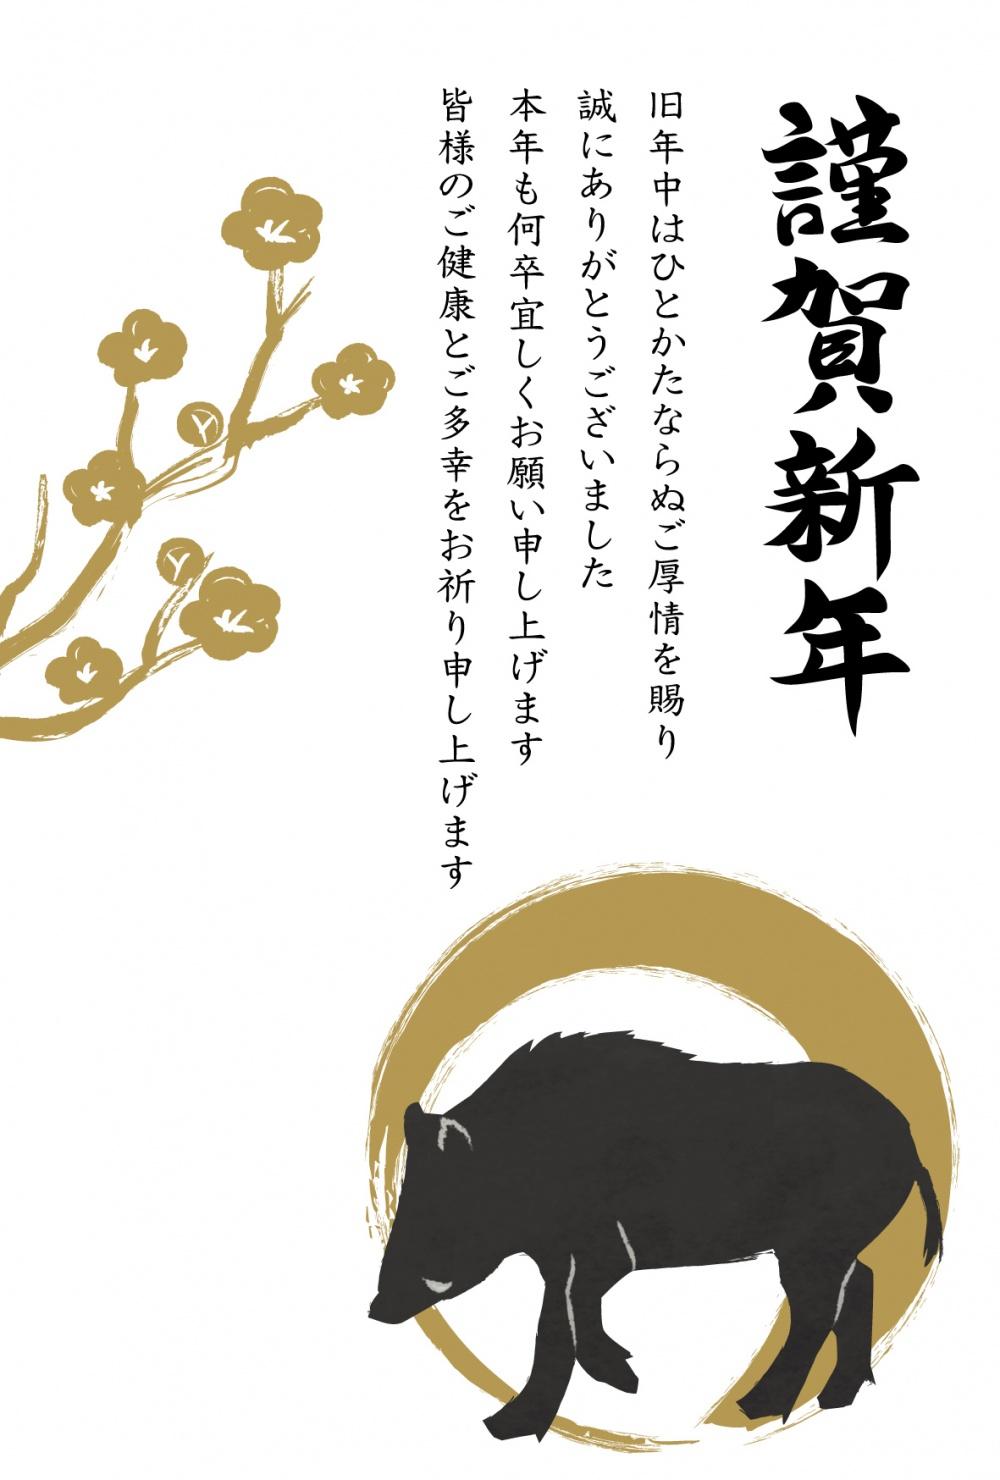 謹賀新年
旧年中はひとかたならぬご厚情を賜り
誠にありがとうございました
本年も何卒宜しくお願い申し上げます
皆様のご健康とご多幸をお祈り申し上げます